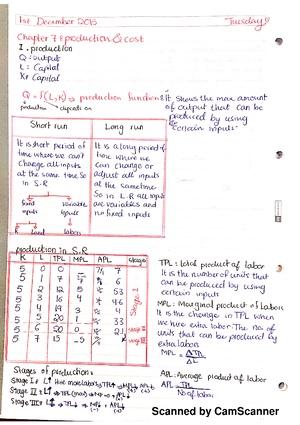 1st December 2015
Tuesday
Chapter 7 : production & cost
I. production
Q : output
L : Capital
K : Capital
Q = f(L,K) → production function : It shows the max amount
of output that can be
produced by using
certain inputs.
production depends on
Short run
It is short period of
time where we can't
change all inputs
at the same time. So
in S.R
fixed inputs
variable inputs
K Land labor
Long run
It is a long period of
time where we
can change or
adjust all inputs
at the same time
So in L.R all inputs
are variables and
no fixed inputs
production in S.R
K L TPL MPL APL Stage
5 0 0
5 1 7 7 7
5 2 12 5 6
5 3 16 4
5 4 19 3
5 5 20 1
5 6 20 0
5 7 15 -5
Stage I
Stage II
Stage III
TPL : total product of labor
It is the number of units that
can be produced by using
certain inputs
MPL : Marginal product of labor
It is the change in TPL when
we hire extra labor. The no. of
units that can be produced by
extra labor.
MPL = ΔTPL / ΔL
APL : Average product of labor
APL = TPL / No of labor
Stages of production :
Stage I : L↑ Hire more labor
Stage II : L↑
Stage III : L↑
Scanned by CamScanner